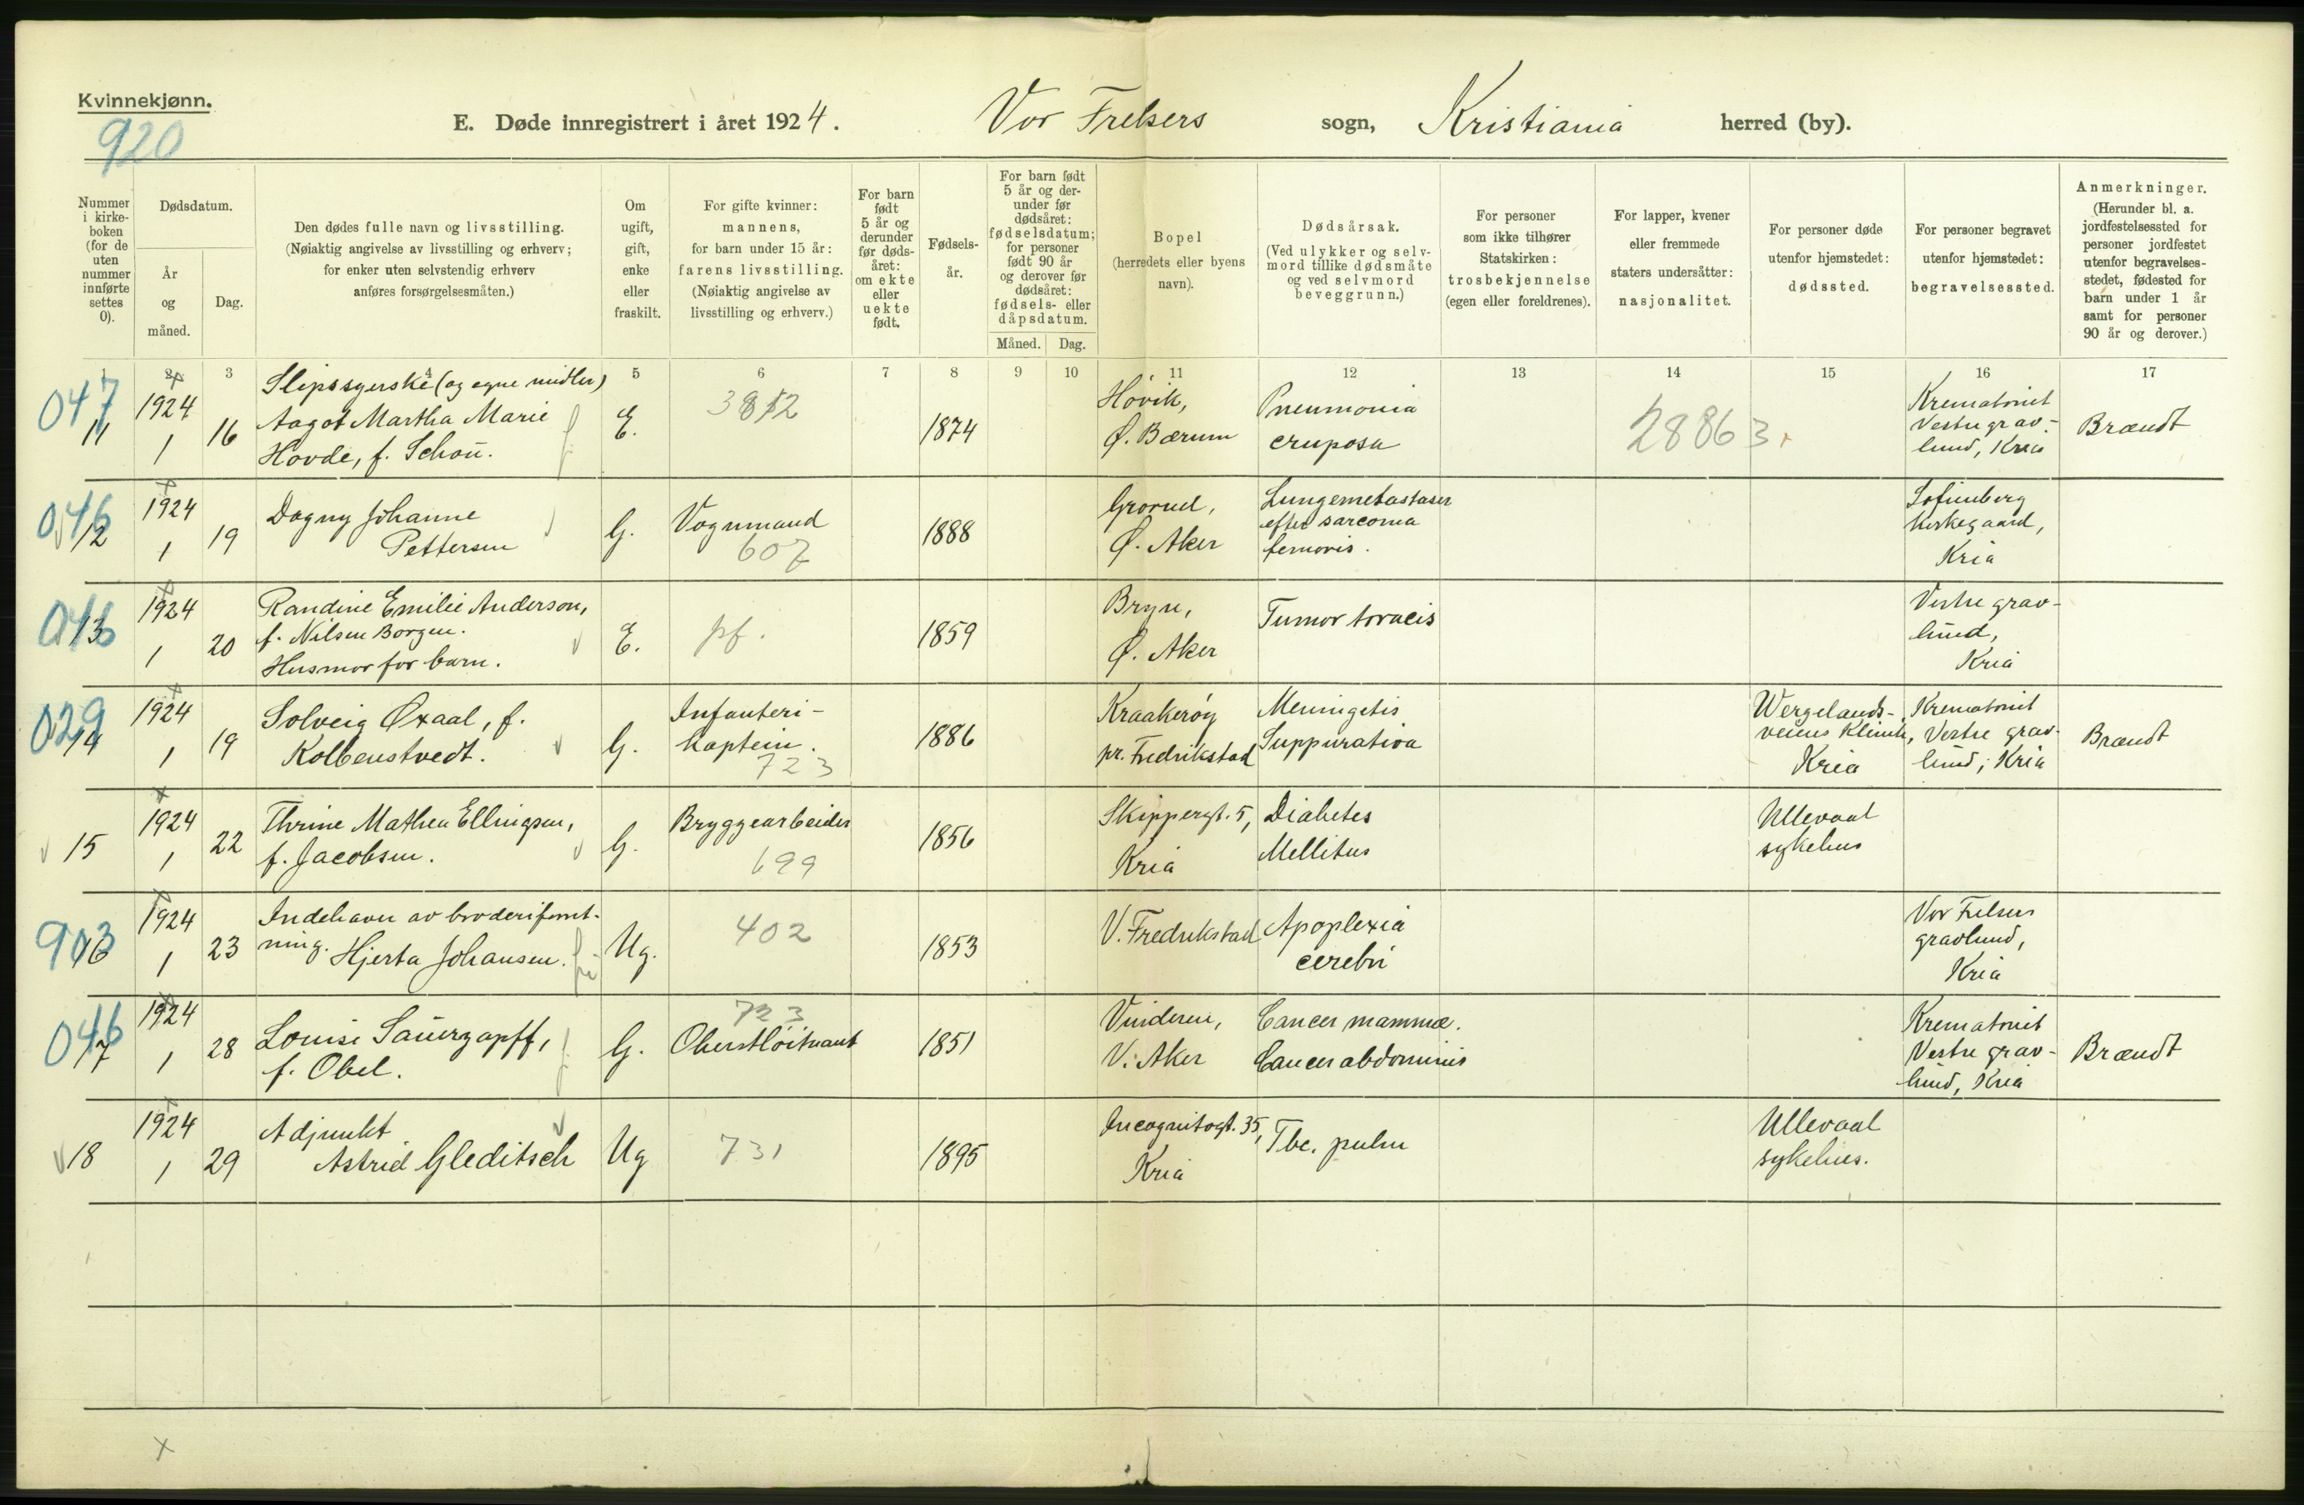 Kvinnekjønn.
920
E. Døde innregistrert i året 1924.
Vor Frelsers sogn, Kristiania herred (by).
Nummer i kirke-boken (for de uten nummer innførte settes 0).
Dødsdatum.
År og måned.
Dag.
Den dødes fulle navn og livsstilling.
(Nøiaktig angivelse av livsstilling og erhverv;
for enker uten selvstendig erhverv
anføres forsørgelsesmåten.)
Om ugift, gift, enke eller fraskilt.
For gifte kvinner:
mannens,
for barn under 15 år:
farens livsstilling.
(Nøiaktig angivelse av
livsstilling og erhverv.)
For barn født 5 år og derunder før døds-året: om ekte eller uekte født.
Fødsels-år.
For barn født
5 år og der-
under før
dødsåret:
fødselsdatum;
for personer
født 90 år
og derover før
dødsåret:
fødsels- eller
dåpsdatum.
Måned. Dag.
Bopel
(herredets eller byens
navn).
Dødsårsak.
(Ved ulykker og selv-
mord tillike dødsmåte
og ved selvmord
beveggrunn.)
For personer
som ikke tilhører
Statskirken:
trosbekjennelse
(egen eller foreldrenes).
For lapper, kvener
eller fremmede
staters undersåtter:
nasjonalitet.
For personer døde
utenfor hjemstedet:
dødssted.
For personer begravet
utenfor hjemstedet:
begravelsessted.
Anmerkninger.
(Herunder bl. a.
jordfestelsessted for
personer jordfestet
utenfor begravelses-
stedet, fødested for
barn under 1 år
samt for personer
90 år og derover.)
1 2 3 4 5 6 7 8 9 10 11 12 13 14 15 16 17
047
11
1924
1
16
Slipssyerske (og egne midler)
Aagot Martha Marie
Hovde, f. Schou.
E.
3812
1874
Høvik,
Ø. Bærum
Pneumonia
cruposa
28863
Krematoriet
Vestre grav-
lund, Kria
Brændt
046
12
1924
1
19
Dagny Johanne
Pettersen
G.
Vognmand
607
1888
Grorud,
Ø. Aker
Lungemetastaser
efter sarcoma
femoris.
Sofienberg
kirkegaard,
Kria
046
13
1924
1
20
Randine Emilie Anderson,
f. Nilsen Borgen.
Husmor for barn.
E.
pf.
1859
Bryn,
Ø. Aker
Tumor toracis
Vestre grav-
lund,
Kria
029
14
1924
1
19
Solveig Øxaal, f.
Kolbenstvedt.
G.
Infanteri-
kaptein.
723
1886
Kraakerøy
pr. Fredrikstad
Meningetis
Suppurativa
Wergelands-
veiens Klinik,
Kria
Krematoriet
Vestre grav-
lund, Kria
Brændt
15
1924
1
22
Thrine Mathea Ellingsen,
f. Jacobsen.
G.
Bryggearbeider
699
1856
Skippergt. 5,
Kria
Diabetes
Mellitus
Ullevaal
sykehus
903
16
1924
1
23
Indehaver av broderiforret-
ning. Hjerta Johansen.
Ug.
402
1853
V. Fredrikstad
Apoplexia
cerebri
Vor Frelsers
gravlund,
Kria
046
17
1924
1
28
Louise Sauerzapff,
f. Obel.
G.
723
Oberstløitnant
1851
Vinderen,
V. Aker
Cancer mammæ.
Cancer abdominis
Krematoriet
Vestre grav-
lund, Kria
Brændt
18
1924
1
29
Adjunkt
Astrid Gleditsch
Ug
731
1895
Incognitogt. 35,
Kria
Tbc. pulm
Ullevaal
sykehus.